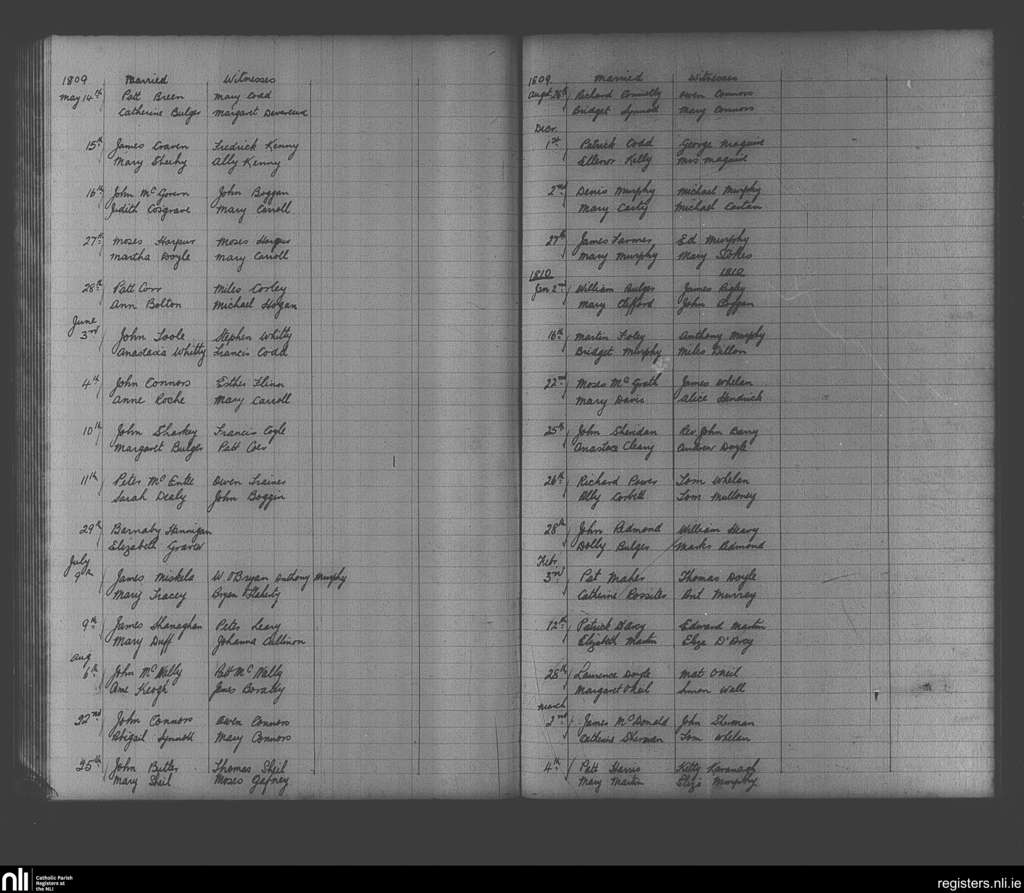 1809 Married Witnesses
May 14th Patt Breen Mary Codd
Catherine Bulger Margaret Devereux
15th James Craven Fredrick Kenny
Mary Sheehy Ally Kenny
16th John McGovern John Boggan
Judith Cosgrave Mary Carroll
27th Moses Harpur Moses Harpur
Martha Doyle Mary Carroll
28th Patt Corr Miles Corley
Ann Bolton Michael Hogan
June
3rd John Toole Stephen Whitty
Anastasia Whitty Francis Codd
4th John Connors Esther Flinn
Anne Roche Mary Carroll
10th John Sharkey Francis Cogle
Margaret Bulger Patt
11th Peter McEntee Owen Trainer
Sarah Dealy John Boggin
29th Barnaby Hannigan
Elizabeth Graves
July
9th James Miskela W. O'Bryan Anthony Murphy
Mary Tracey Bryan Flaherty
9th James Shanaghan Peter Leary
Mary Duff Johanna Cullinon
Aug
6th John McNally Patt McNally
Ame Keogh James
22nd John Connors Owen Connors
Abigail Synnott Mary Connors
25th John Butler Thomas Sheil
Mary Sheil Moses Gafney
1809 Married Witnesses
Augst 28th Richard Connolly Owen Connors
Bridget Synnott Mary Connors
Decr.
1st Patrick Codd George Maguire
Ellenor Kelly Mrs Maguire
2nd Denis Murphy Michael Murphy
Mary Carty Michael
27th James Farmer Ed Murphy
Mary Murphy Mary Stokes
1810 1810
Jan 2nd William Bulger James Rigley
Mary Clifford John
16th Martin Foley Anthony Murphy
Bridget Murphy Miles Dillon
22nd Moses McGrath James Whelan
Mary Davis Alice Hendrick
25th John Sheridan Rev John Barry
Anastace Cleary Andrew Doyle
26th Richard Power Tom Whelan
Ally Corbett Tom Mulloney
28th John Redmond William Heavy
Dolly Bulger Marks Redmond
Febr.
3rd Pat Maher Thomas Doyle
Catherine Rossiter Ant Murray
12th Patrick Darcy Edward Martin
Elizabeth Martin Eliza D'Arcy
28th Laurence Doyle Mat ONeil
Margaret ONeil Simon Wall
March
2nd James McDonald John Sherman
Catherine Sherman Tom Whelan
4th Patt Harris Kitty Kavanagh
Mary Martin Eliza Murphy
nli Catholic Parish
Registers at
the NLI
registers.nli.ie